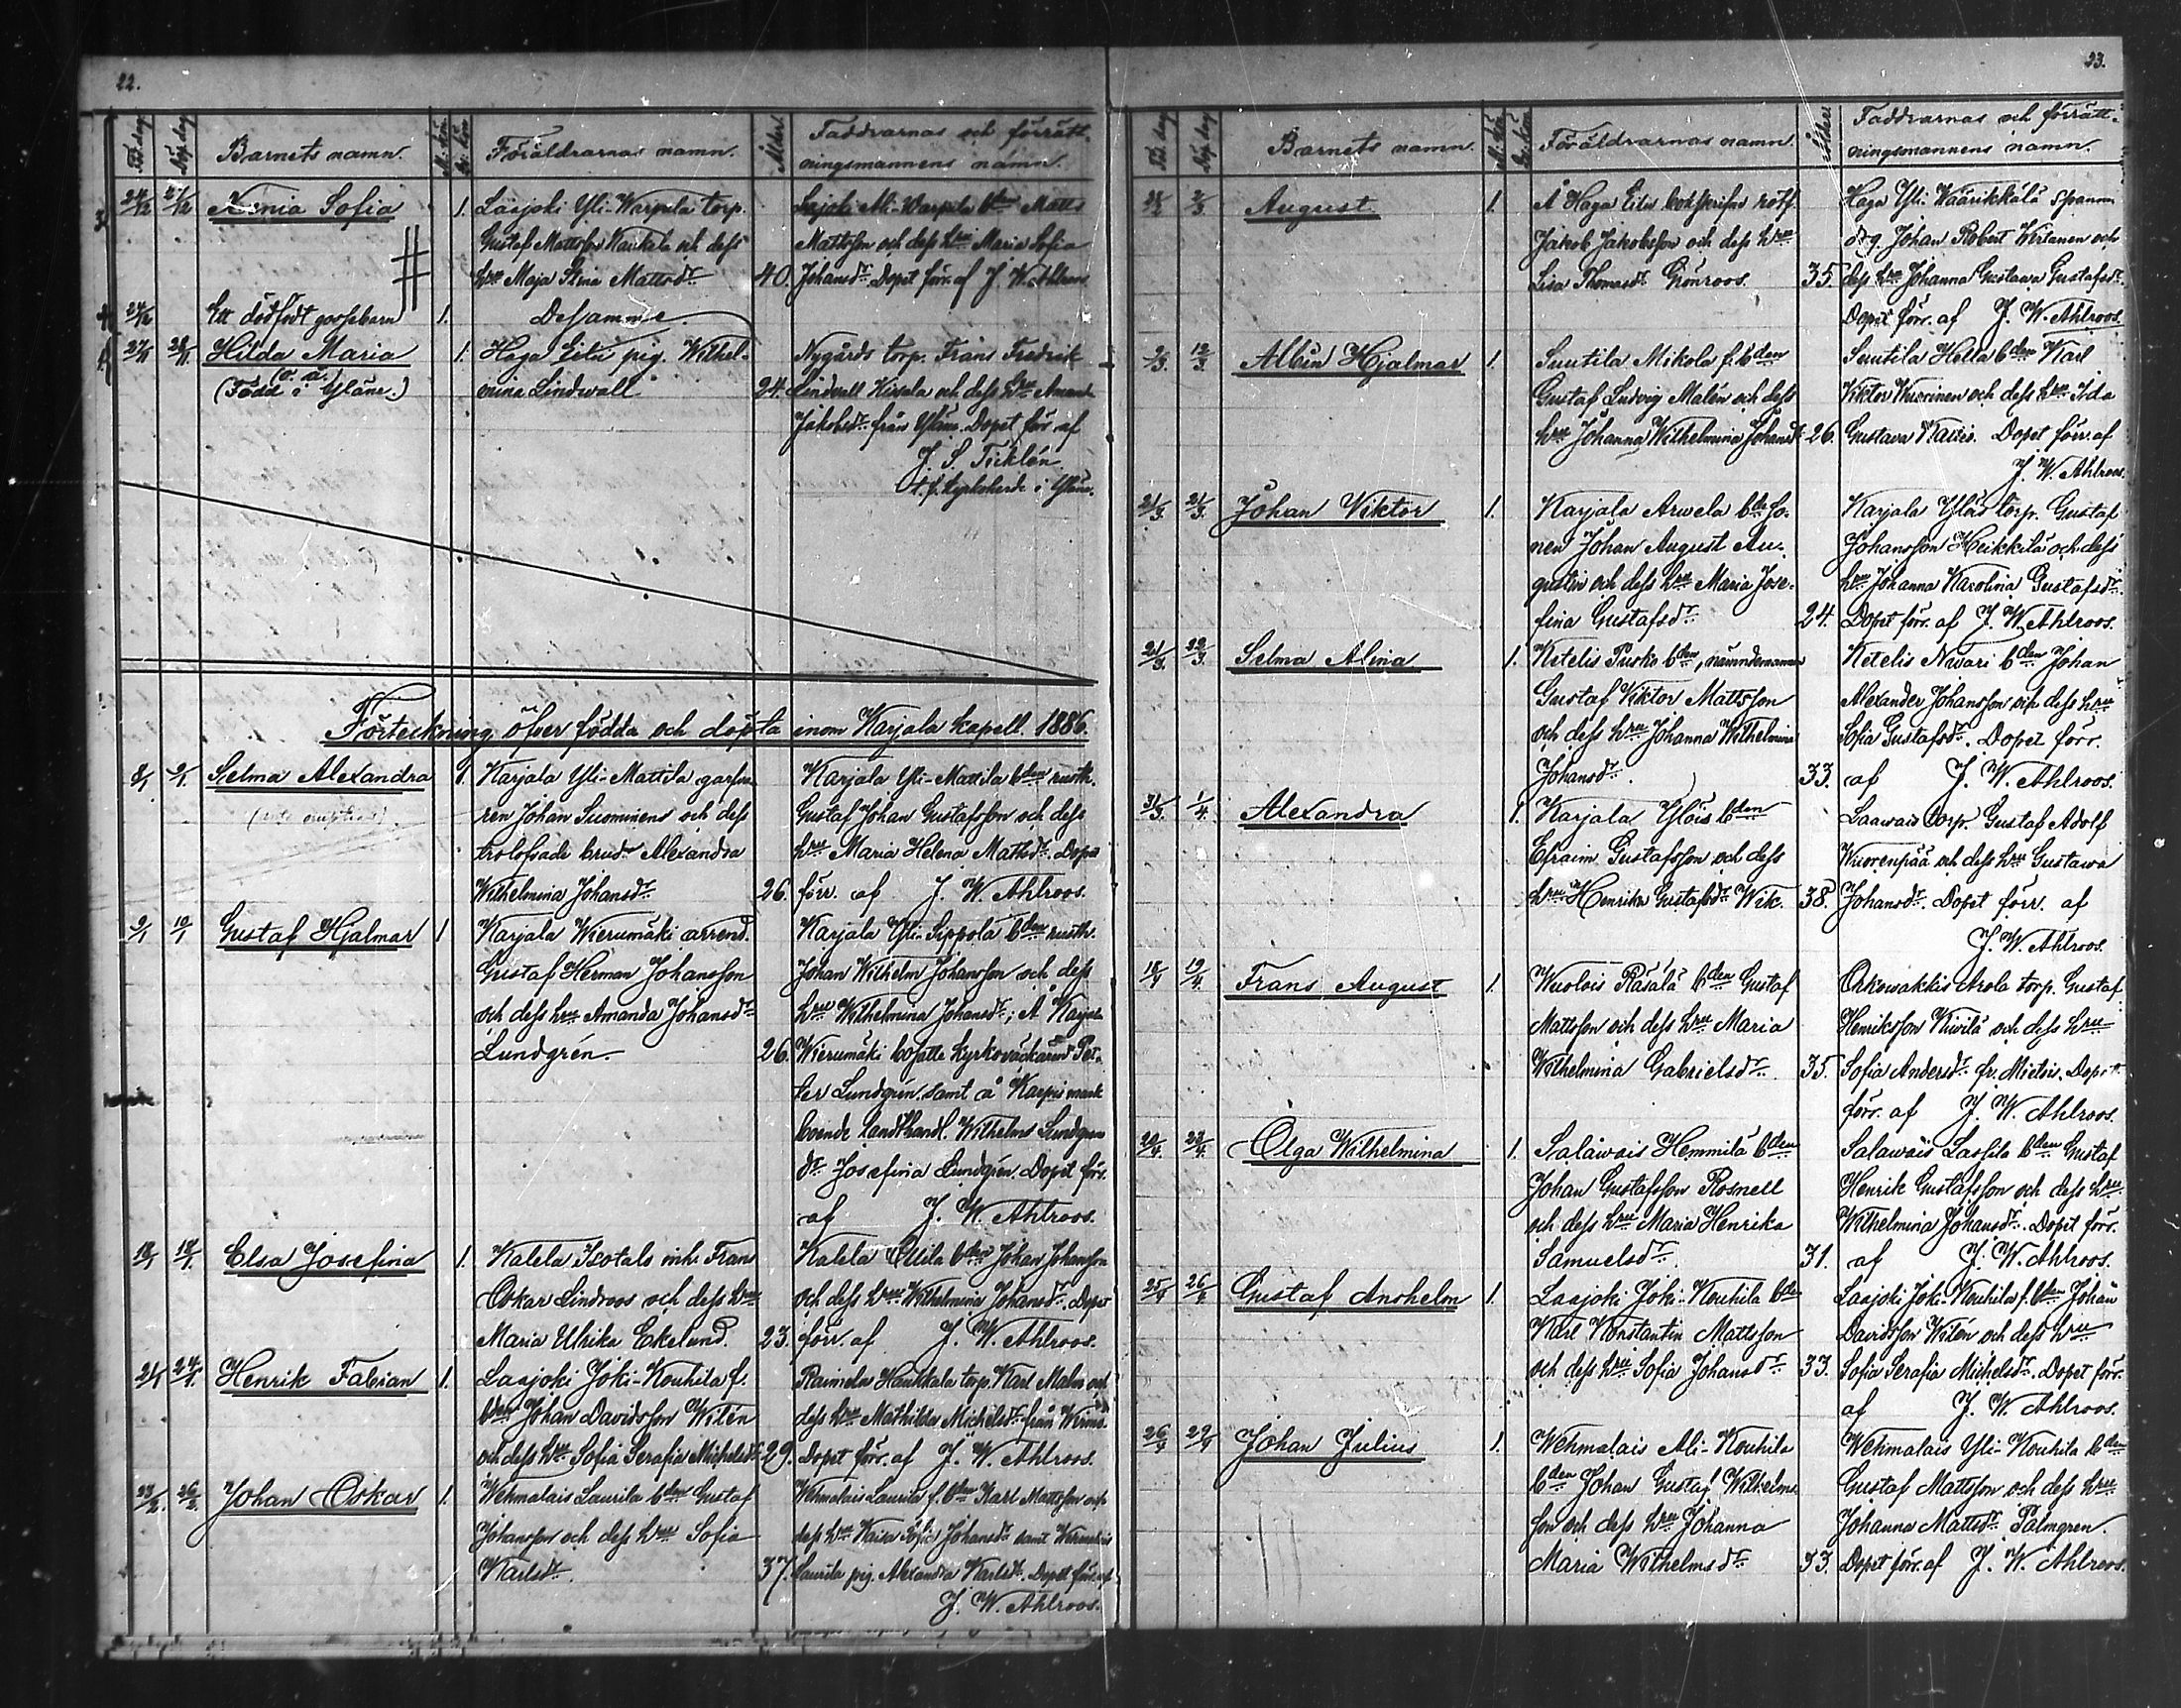 22.
Föd. dag
Döp. dag
Barnets namn.
M. kön
Qv. kön
Föräldrarnas namn.
Ålder.
Faddrarnas och förrätt-
ningsmannens namn.
24/12 27/12 Xenia Sofia 1. Laajoki Yli-Warpula torp.
Gustaf Mattsson Kaukala och dess
hru Maja Stina Mattsdr 40.
Lajoki Ali-Warpula bden Matts
Mattsson och dess hru Maria Sofia
Johansdr. Dopet förr. af J. W. Ahlroos
24/12 Ett dödfödt gossebarn 1. Desamme.
27/11 28/11 Hilda Maria 1. Haga Eitu pig. Wilhel-
(o. ä.)
(Född i Yläne.) mina Lindwall 24.
Nygårds torp. Frans Fredrik
Lindvall Kissala och dess hru Amanda
Jakobsdr. från Yläne. Dopet förr af
J. S. Ticklén
t. f. kyrkoherde i Yläne.
Förteckning öfver födda och döpta inom Karjala kapell. 1886.
8/1 9/1 Selma Alexandra 1. Karjala Yli-Mattila garfva-
ren Johan Suominens och dess
trolofvade brud Alexandra
Wilhelmina Johansdr. 26.
Karjala Yli-Mattila bden rusth.
Gustaf Johan Gustafsson och dess
hru Maria Helena Mattsdr. Dopet
förr. af J. W. Ahlroos.
9/1 10/1 Gustaf Hjalmar 1 Karjala Wierumäki arrend.
Gustaf Herman Johansson
och dess hru Amanda Johansdr
Lundgrén. 26.
Karjala Yli-Sippola bden rusth.
Johan Wilhelm Johansson och dess
hru Wilhelmina Johansdr; Å Karjala
Wierumäki bosatte kyrkoväckaren Pet-
ter Lundgrén, samt å Karpis mark
boende landthandl. Wilhelms Lundgren
dr Josefina Lundgrén. Dopet förr.
af J. W. Ahlroos.
18/1 18/1. Elsa Josefina 1. Kalela Isotalo inh. Frans
Oskar Lindroos och dess hru
Maria Ulrika Ekelund. 23.
Kalela Ollila bden Johan Johansson
och dess hru Wilhelmina Johansdr. Dopet
förr. af J. W. Ahlroos.
21/1 24/1. Henrik Fabian 1. Laajoki Joki-Kouhila f.
bden Johan Davidsson Witén
och dess hru Sofia Serafia Michelsdr 29.
Raimela Haukkala torp. Karl Malm och
dess hru Mathilda Michelsdr från Wirmo.
Dopet förr. af J. W. Ahlroos.
23/2. 26/2. Johan Oskar 1. Wehmalais Laurila bden Gustaf
Johansson och dess hru Sofia
Karlsdr. 37.
Wehmalais Laurila f. bden Karl Mattsson och
dess hru Kaisa Sofia Johansdr samt Wehmalais
Laurila pig. Alexandra Karlsdr. Dopet förr. af
J. W. Ahlroos.
23.
Föd. dag
Döp. dag
Barnets namn.
M. kön
Qv. kön
Föräldrarnas namn.
Ålder
Faddrarnas och förrätt-
ningsmannens namn.
28/2 2/3 August 1. Å Haga Eitu bokskrifne rotf.
Jakob Jakobsson och dess hru
Lisa Thomasdr Grönroos. 35.
Haga Yli-Wäärikkälä spanm.
drg. Johan Robert Wirtanen och
dess hru Johanna Gustawa Gustafsdr.
Dopet förr. af J. W. Ahlroos.
9/3. 12/3. Albin Hjalmar 1. Suutila Mikola f. bden
Gustaf Ludvig Malén och dess
hru Johanna Wilhelmina Johansdr 26.
Suutila Hella bden Karl
Viktor Wuorinen och dess hru Ida
Gustava Dopet förr. af
J. W. Ahlroos.
21/3. 21/3. Johan Viktor 1. Karjala Arwela bde so-
nen Johan August Au-
gustin och dess hru Maria Jose-
fina Gustafsdr. 24.
Karjala Yläs torp. Gustaf
Johansson Heikkilä och dess
hru Johanna Karolina Gustafsdr.
Dopet förr. af J. W. Ahlroos.
21/3. 22/3. Selma Alina 1. Ketelis Pusko bden, nämndemannen
Gustaf Viktor Mattsson
och dess hru Johanna Wilhelmina
Johansdr. 33.
Ketelis Nwari bden Johan
Alexander Johansson och dess hru
Sofia Gustafsdr. Dopet förr.
af J. W. Ahlroos.
31/3. 1/4. Alexandra 1. Karjala Yläis bden
Efraim Gustafsson och dess
hru Henrika Gustafsdr Wik. 38.
Laawais torp. Gustaf Adolf
Wuorenpää och dess hru Gustawa
Johansdr. Dopet förr. af
J. W. Ahlroos.
18/4 19/4. Frans August 1. Wuolois Räsälä bden Gustaf
Mattsson och dess hru Maria
Wilhelmina Gabrielsdr. 35.
Orkowakkis Arola torp. Gustaf
Henriksson Kiwilä och dess hru
Sofia Andersdr. fr. Mietois. Dopet
förr. af J. W. Ahlroos.
20/4. 23/4. Olga Wilhelmina 1. Salawais Hemmilä bden
Johan Gustafsson Rosnell
och dess hru Maria Henrika
Samuelsdr. 31.
Salawais Lassila bden Gustaf
Henrik Gustafsson och dess hru
Wilhelmina Johansdr. Dopet förr.
af J. W. Ahlroos.
25/4 26/4 Gustaf Anshelm 1. Laajoki Joki-Kouhila bden
Karl Konstantin Mattsson
och dess hru Sofia Johansdr 33.
Laajoki Joki-Kouhila f. bden Johan
Davidsson Witén och dess hru
Sofia Serafia Michelsdr. Dopet förr.
af J. W. Ahlroos.
26/4 29/4 Johan Julius 1. Wehmalais Ali-Kouhila
bden Johan Gustaf Wilhelms-
son och dess hru Johanna
Maria Wilhelmsdr. 33.
Wehmalais Yli-Kouhila bden
Gustaf Mattsson och dess hru
Johanna Mattsdr. Palmgren.
Dopet förr. af J. W. Ahlroos.